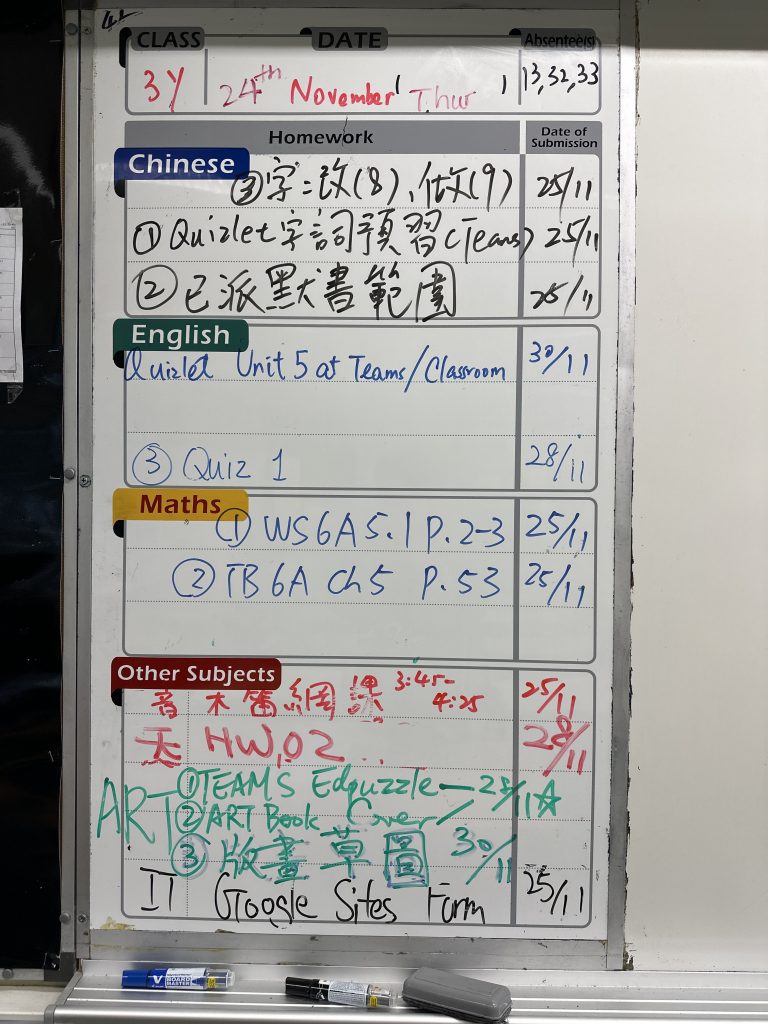 CLASS DATE Absentee(s)
3Y 24th November ( Thur ) 13,32,33
Homework Date of Submission
Chinese
③字:改(8)、做(9) 25/11
①Quizlet字詞預習(Teams) 25/11
②已派默書範圍 25/11
English
Quizlet Unit 5 at Teams/Classroom 30/11
③ Quiz 1 28/11
Maths
① WS6A5.1 P.2-3 25/11
② TB 6A Ch5 P.53 25/11
Other Subjects
音 木笛網課 3:45-4:25 25/11
天 HW02 28/11
ART ①TEAMS Edpuzzle — 25/11☆
②ART Book Cover
③版畫草圖 30/11
IT Google Sites Form 25/11
V BOARD MASTER